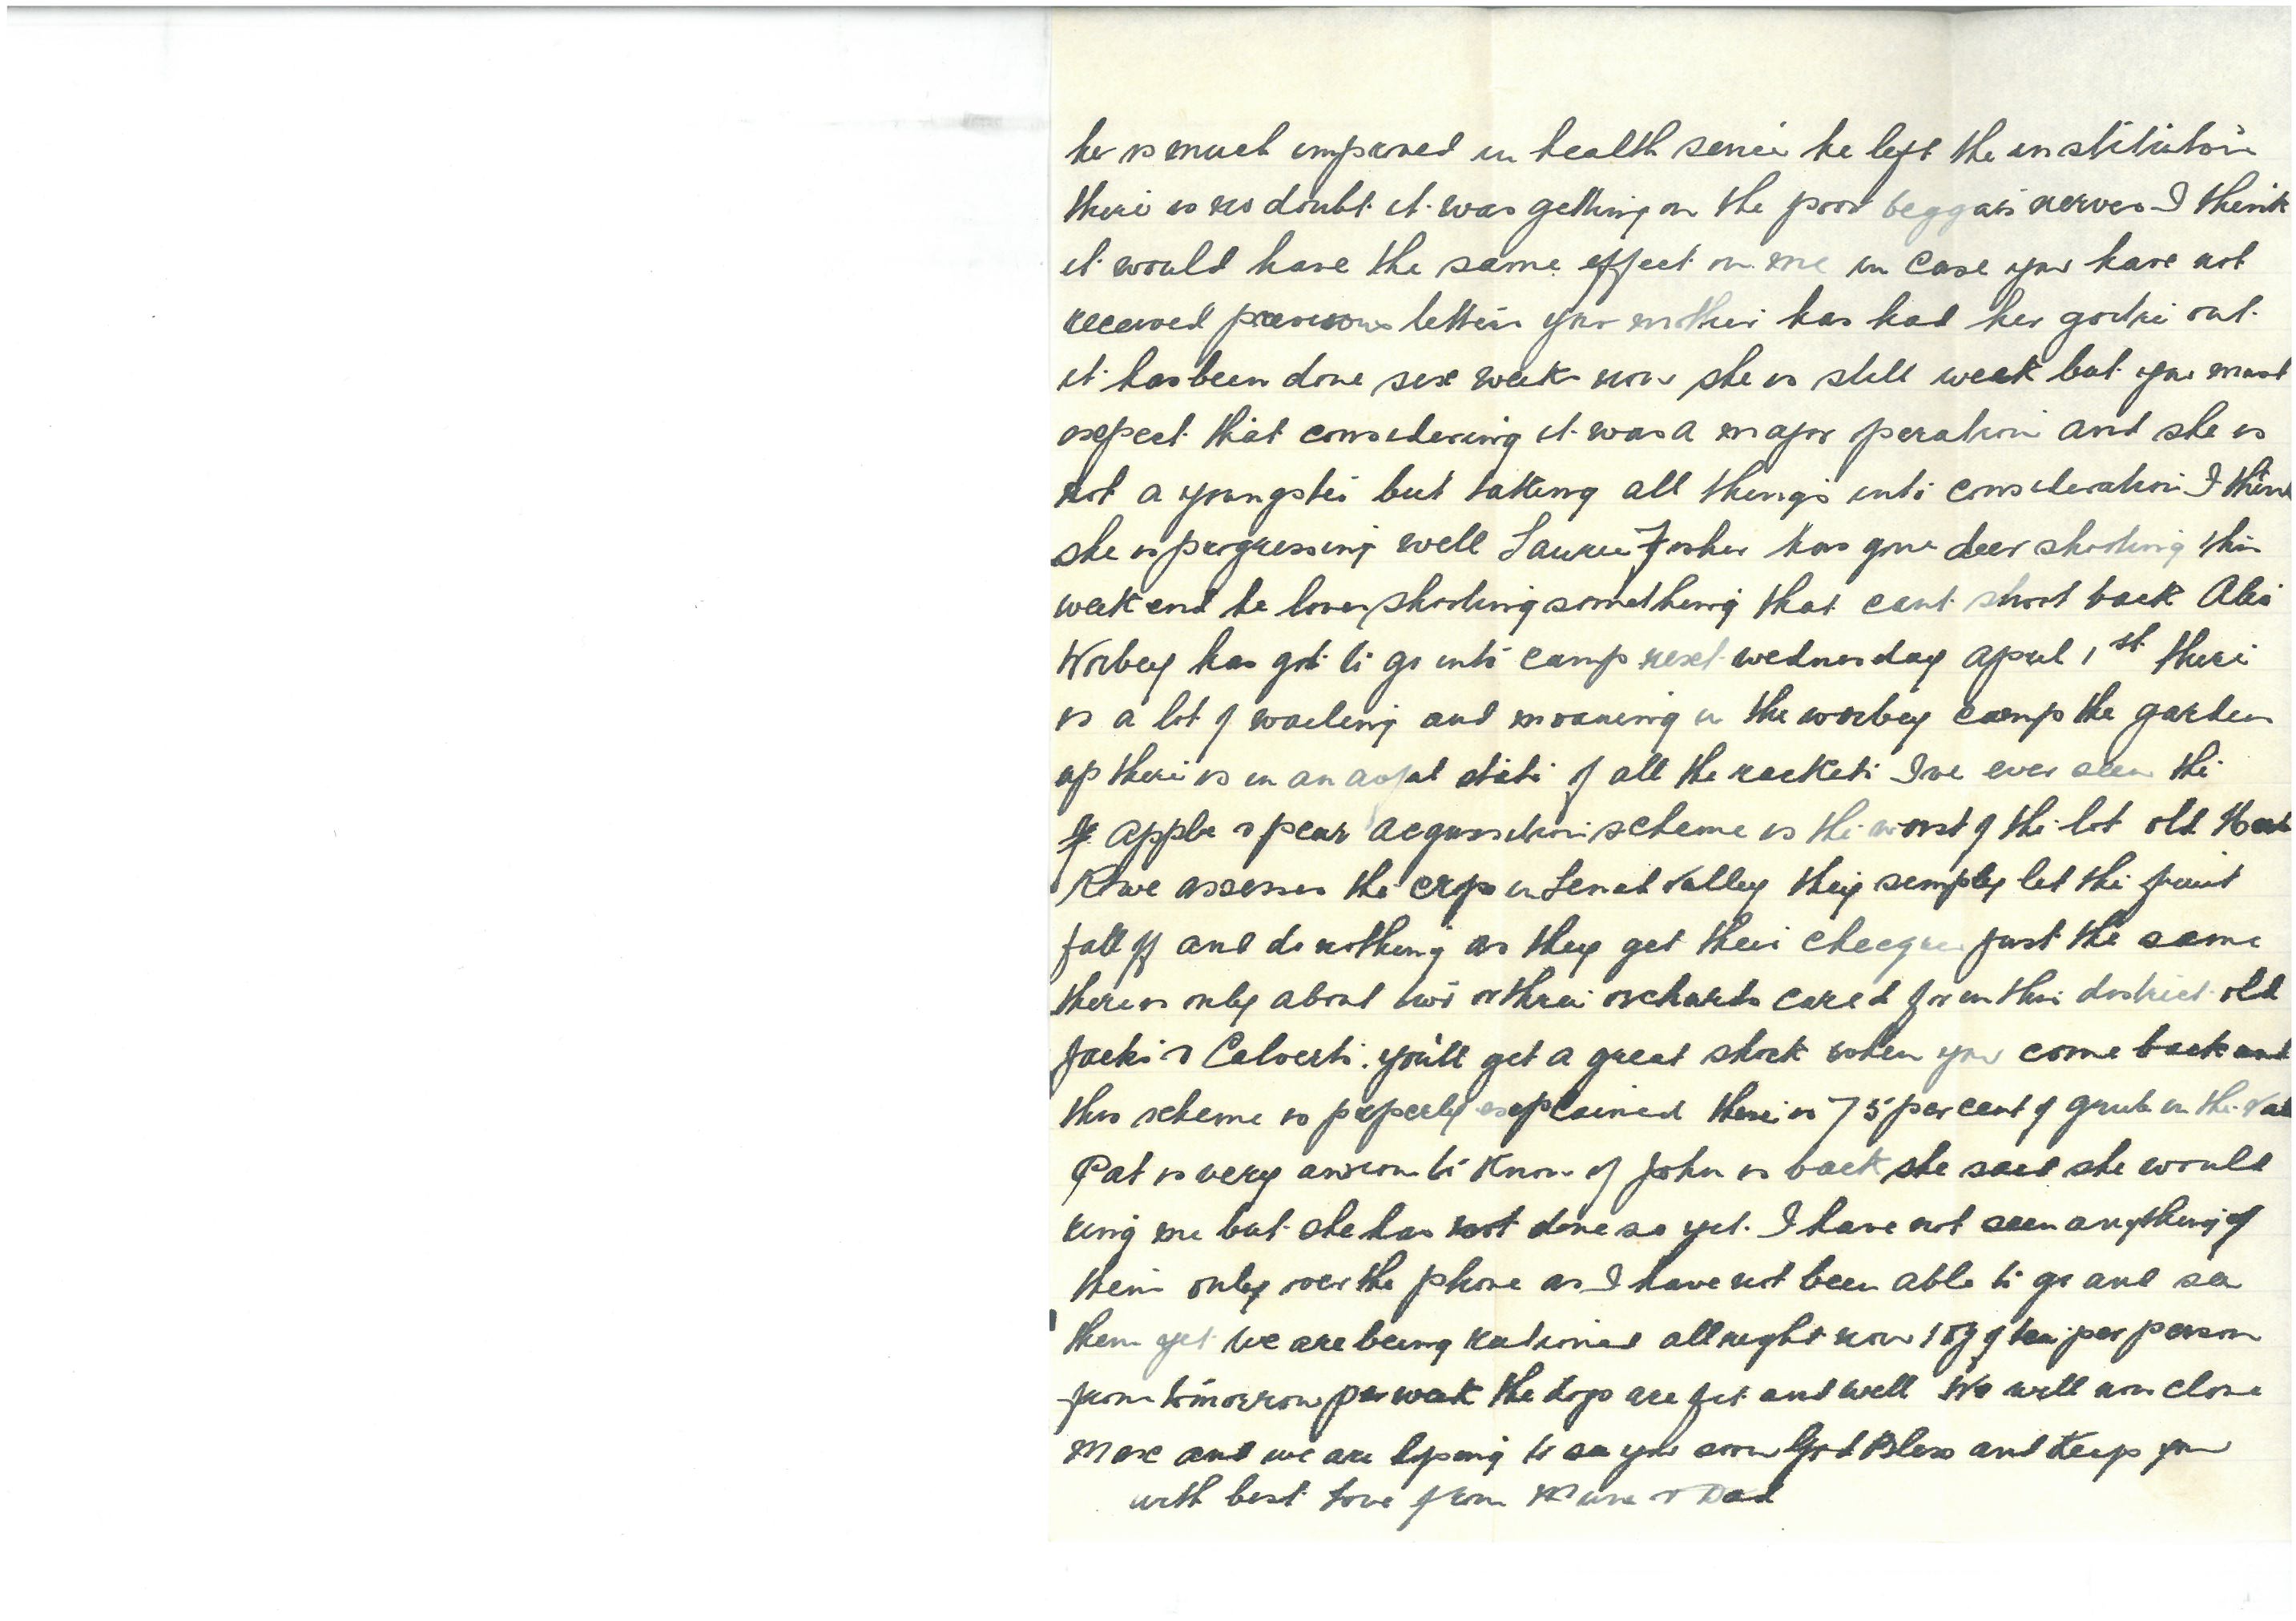 he is much improved in health since he left the institution
there is no doubt it was getting on the poor beggars nerves I think
it would have the same effect on me in case you have not
received previous letters your mother has had her goitre out
it has been done six weeks now she is still weak but you must
expect that considering it was a major peration and she is
not a youngster but taking all things into consideration I think
she is progressing well Laurie Fisher has gone deer shooting this
week end he loves shooting something that cant shoot back Alec
Worbey has got to go into camp next wednesday April 1st there
is a lot of wailing and moaning in the worbey camp the garden
up there is in an awful state of all the rackets Ive ever seen the
apple & pear acquisition scheme is the worst of the lot old
Rowe assesses the crop in Lenah Valley they simply let the fruit
fall off and do nothing as they get their cheques just the same
there is only about two or three orchards cared for in this district old
Jacks & Calverts. you'll get a great shock when you come back and
this scheme is properly explained there is 75 per cent of grub in the
Pat is very anxious to know if John is back she said she would
ring me but she has not done so yet. I have not seen anything of
them only over the phone as I have not been able to go and see
them yet we are being rationed allright now 1 oz of tea per person
from tomorrow per week the dogs are fit and well We will now close
Max and we are hoping to see you soon God Bless and Keep you
with best love from Mum & Dad